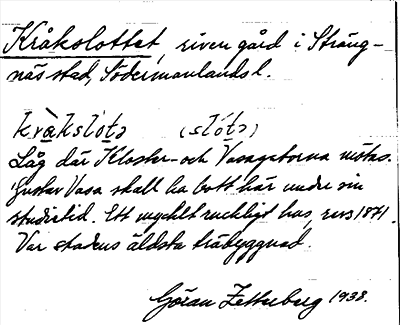 Kråkslottet, riven gård i Sträng-
näs stad, Södermanlands l.
kråkslotə (slótə)
Låg där Kloster- och Vasagatorna mötas.
Gustav Vasa skall ha bott här under sin
studietid. Ett mycket ruckligt hus, revs 1871.
Var stadens äldsta träbyggnad.
Göran Zetterberg 1938.